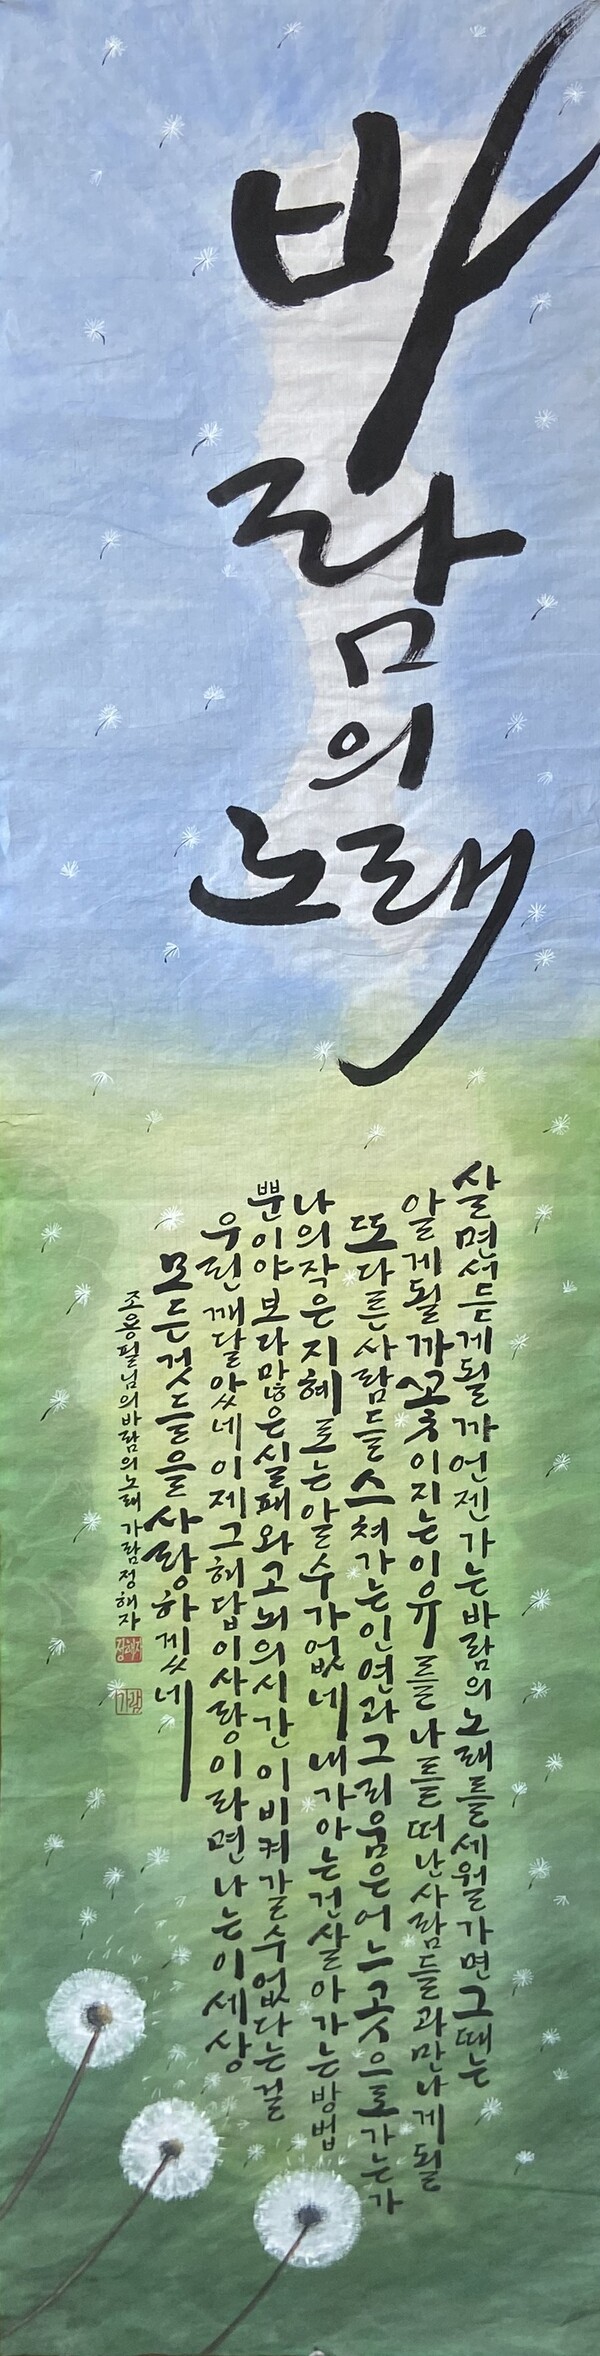 바람의 노래
살면서 듣게 될까 언젠가는 바람의 노래를 세월 가면 그때는
알게 될까 꽃이 지는 이유를 나를 떠난 사람들과 만나게 될
또 다른 사람들 스쳐가는 인연과 그리움은 어느 곳으로 가는가
나의 작은 지혜로는 알 수가 없네 내가 아는 건 살아가는 방법
뿐이야 보다 많은 실패와 고뇌의 시간이 비켜갈 수 없다는 걸
우린 깨달았네 이제 그 해답이 사랑이라면 나는 이 세상
모든 것들을 사랑하겠네
조용필님의 바람의 노래 가람 정해자
가람